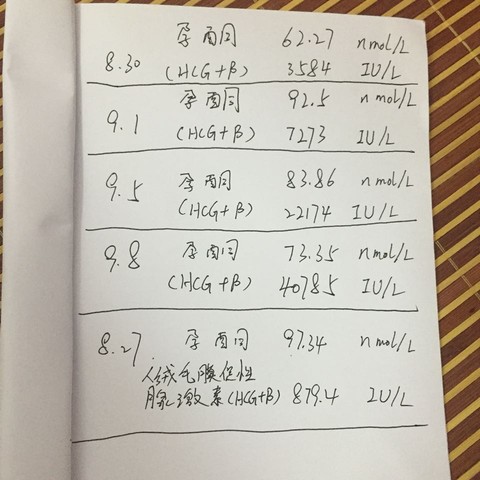 孕酮 62.27 nmol/L
8.30 (HCG+β) 3584 IU/L
孕酮 92.5 nmol/L
9.1 (HCG+β) 7273 IU/L
9.5 孕酮 83.86 nmol/L
(HCG+β) 22174 IU/L
9.8 孕酮 73.35 nmol/L
(HCG+β) 40785 IU/L
8.27 孕酮 97.34 nmol/L
人绒毛膜促性
腺激素(HCG+β) 879.4 IU/L